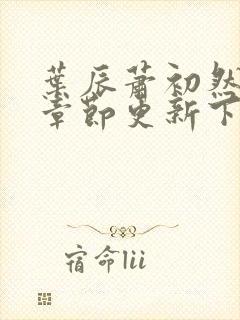 葉辰蕭初然
章節更新下
宿命lii